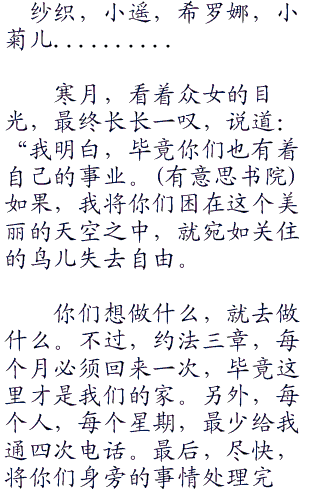 纱织，小遥，希罗娜，小
菊儿..........
寒月，看着众女的目
光，最终长长一叹，说道：
“我明白，毕竟你们也有着
自己的事业。(有意思书院)
如果，我将你们困在这个美
丽的天空之中，就宛如关住
的鸟儿失去自由。
你们想做什么，就去做
什么。不过，约法三章，每
个月必须回来一次，毕竟这
里才是我们的家。另外，每
个人，每个星期，最少给我
通四次电话。最后，尽快，
将你们身旁的事情处理完